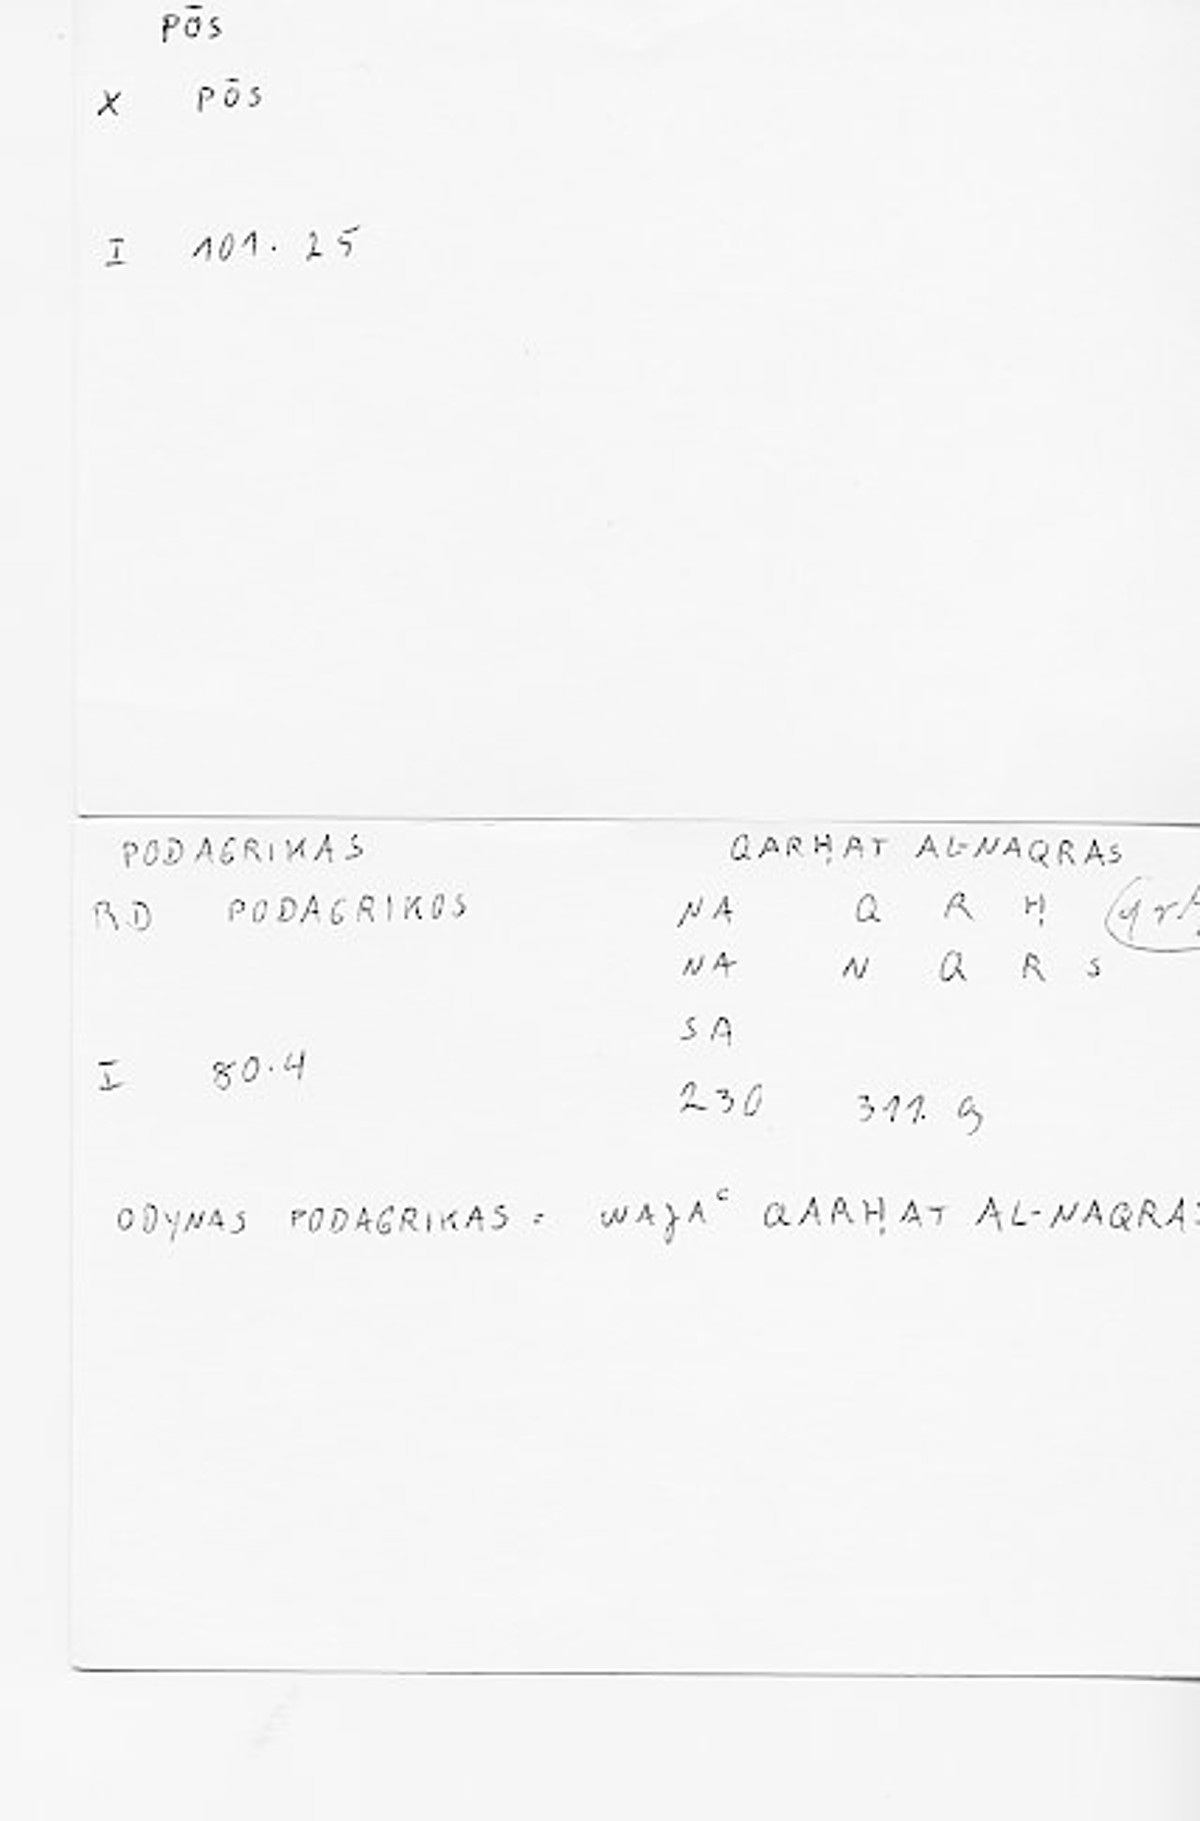 PŌS
X PŌS
I 101. 25
PODAGRIKAS QARḤAT AL-NAQRAS
RD PODAGRIKOS NA Q R Ḥ
NA N Q R S
SA
I 80.4
230 311. 9
ODYNAS PODAGRIKAS = WAJAᶜ QARḤAT AL-NAQRAS